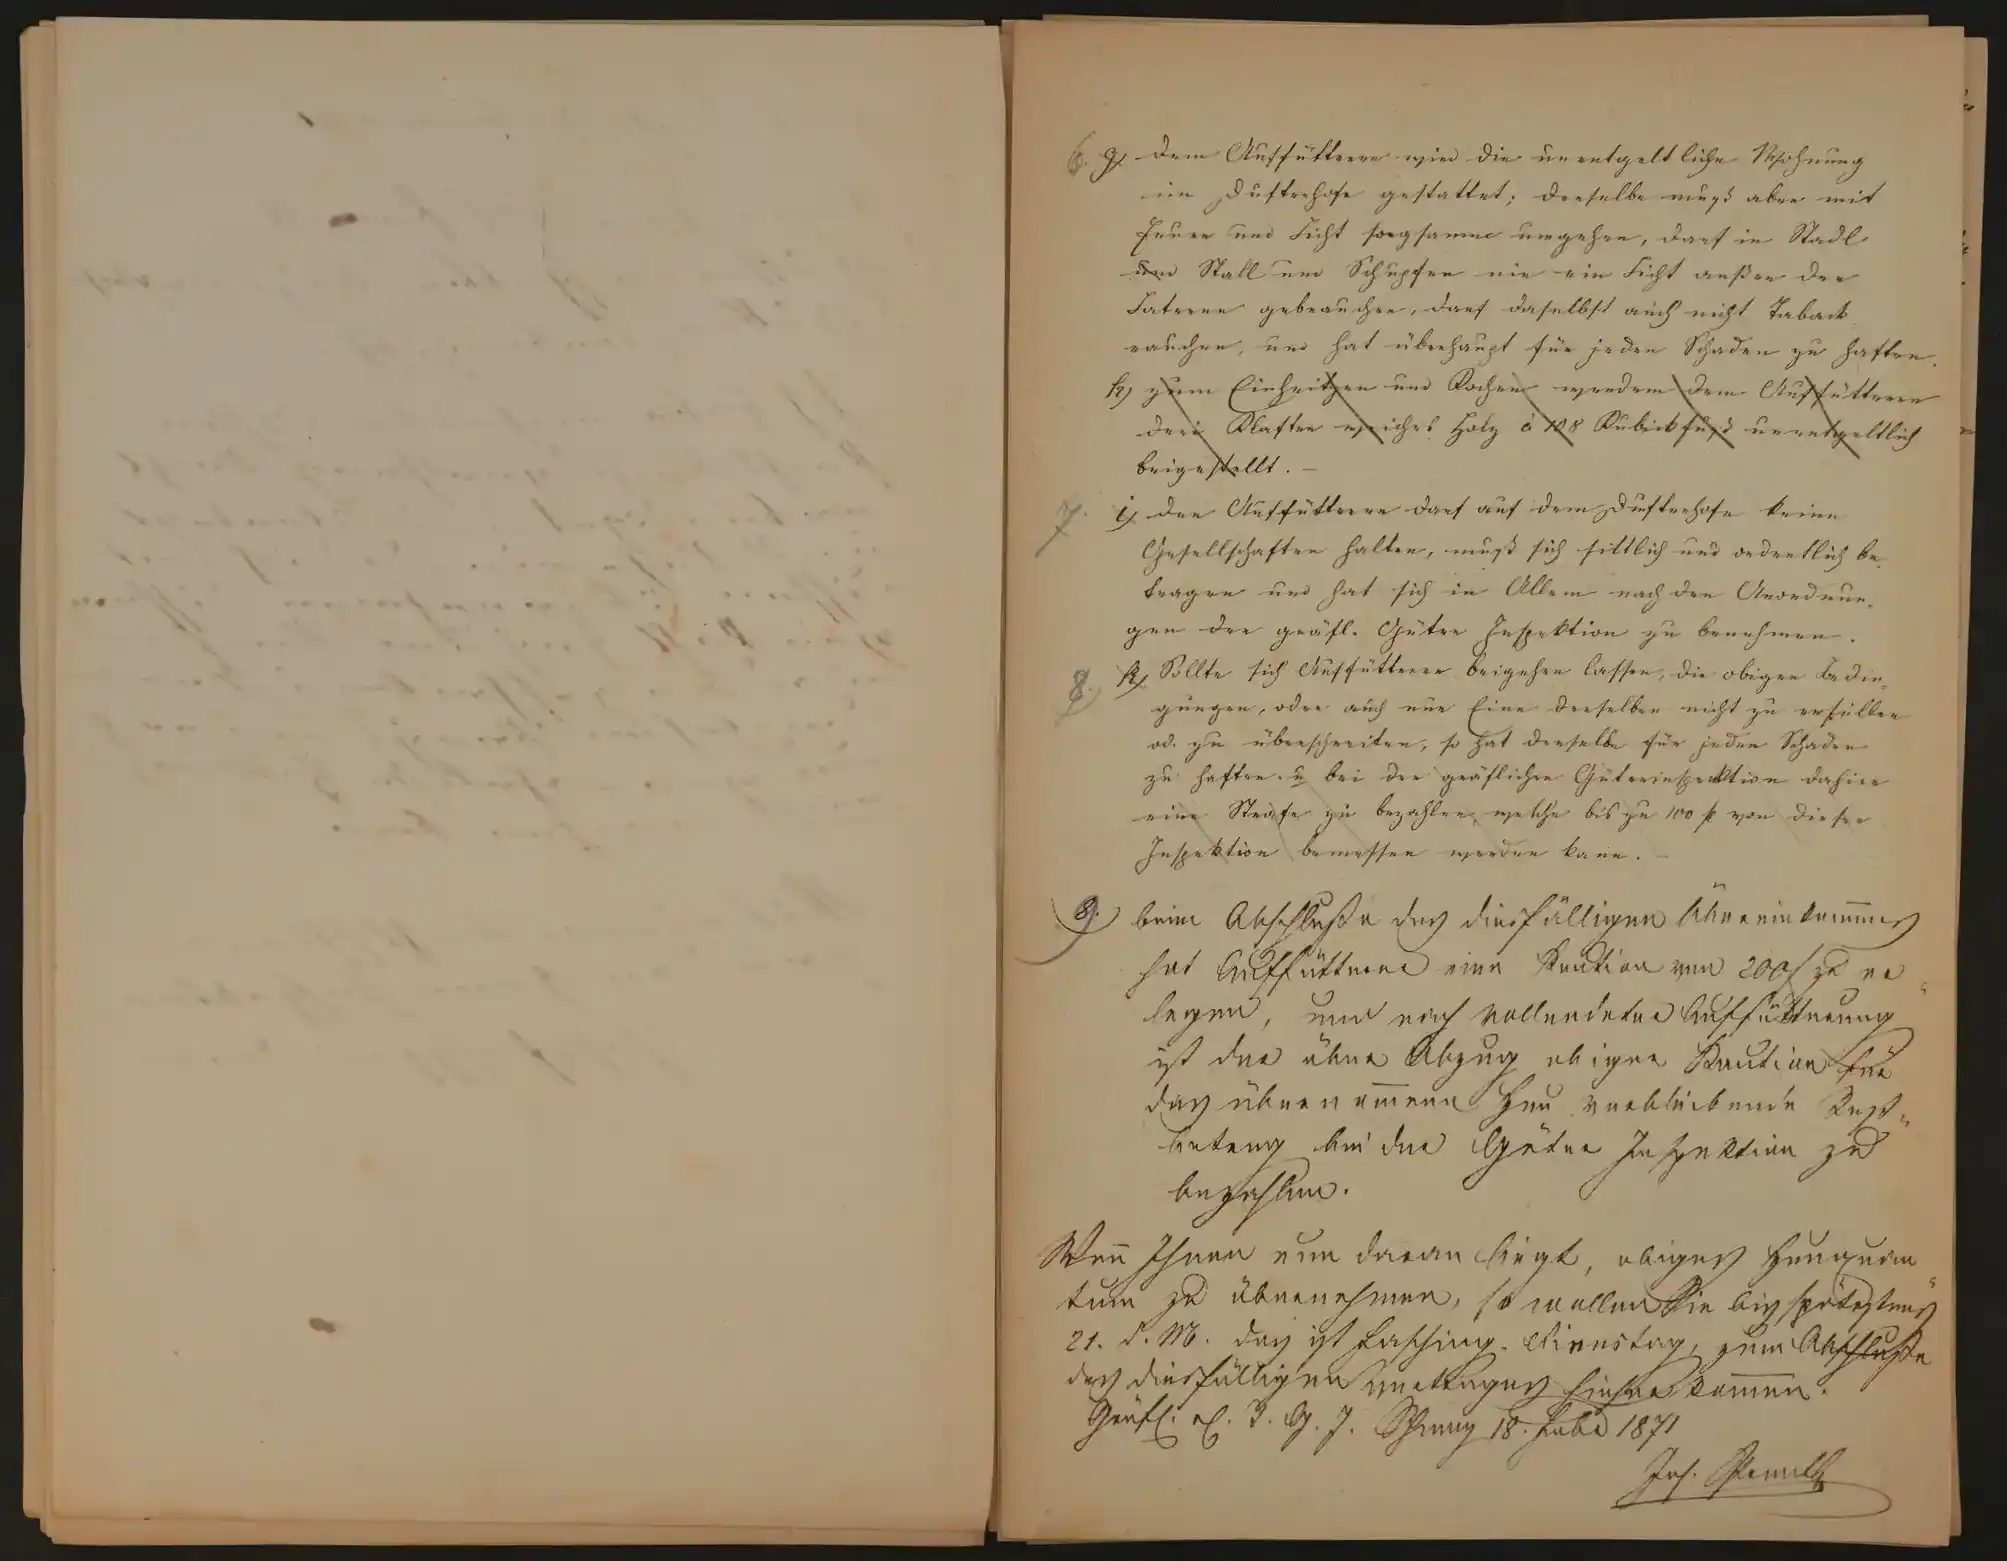 6. g) dem Auffütterer wird die unentgeltliche Wohnung
im Dufterhofe gestattet; derselbe muß aber mit
Feuer und Licht sorgsamme umgehen, darf in Stadl
und Stall und Schupfen nie ein Licht außer der
Laterne gebrauchen, darf daselbst auch nicht Taback
rauchen, und hat überhaupt für jeden Schaden zu haften.
h) zum Einheitzen und Kochen werdem dem Auffütterer
drei Klafter weiches Holz à 108 Kubickfuß unentgeltlich
beigestellt. –
7. i) der Auffütterer darf auf dem Dufterhofe keine
Gesellschaften halten, muß sich sittlich und ordentlich be-
tragen und hat sich in Allem nach den Anordnun-
gen der gräfl. Güter Inspektion zu benehmen.
8. k) Sollte sich Auffütterer beigehen lassen, die obigen Bedin-
gungen, oder auch nur Eine derselben nicht zu erfüllen
od. zu überschreiten, so hat derselbe für jeden Schaden
zu haften. u bei der gräflichen Güterinspektion dahier
eine Strafe zu bezahlen, welche bis zu 100 f von dieser
Inspektion bemessen werden kann. –
9) beim Abschluße des diesfälligen Übereinkommens
hat Auffütterer eine Kaution von 200 f zu er-
legen, und nach vollendeter Auffütterung
ist der über Abzug obiger Kaution für
das übernommene Heu verbleibende Rest-
betrag bei der Güter Inspektion zu
bezahlen.
Wenn Ihnen nun daran liegt, obiges Heuquan-
tum zu übernehmen, so wollen Sie bis spätestens
21. d. M. das ist Fasching-Dienstag, zum Abschluße
des diesfälligen Vertrages hieher kommen.
Gräfl. 18. Feber 1871
Jos.